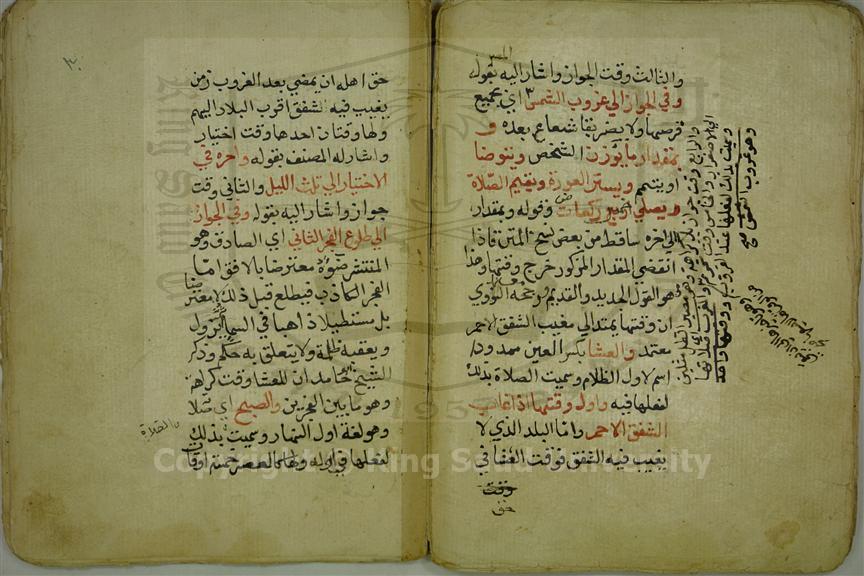 والثالث وقت الجواز واشار اليه بقوله
وفي الجواز الي غروب الشمس اي بجميع
قرصها ولا يضر بقا شعاع بعده و
بمقدار ما يؤذن الشخص ويتوضا
او يتيمم ويستر العورة ويقيم الصلاة
ويصلي ركعات وقوله وبمقدار
الي اخره ساقط من بعض نسخ المتن فاذا
انقضي المقدار المذكور خرج وقتها وهذا
هو القول الجديد والقديم ورجحه النووي
ان وقتها يمتد الي مغيب الشفق الاحمر
معتمد والعشا بكسر العين ممدودا
اسم لاول الظلام وسميت الصلاة بذلك
لفعلها فيه واول وقتها اذا غاب
الشفق الاحمر واما البلد الذي لا
يغيب فيه الشفق فوقت العشا في
وقت
حق
وهو غروب الشمس
٣٠
حق اهله ان يمضي بعد الغروب زمن
يغيب فيه الشفق اقرب البلاد اليهم
ولها وقتان احدها وقت اختيار
واشار له المصنف بقوله واخره في
الاختيار الي ثلث الليل والثاني وقت
جواز واشار اليه بقوله وفي الجواز
الي طلوع الفجر الثاني اي الصادق وهو
المنتشر ضوؤه معترضا بالافق اما
الفجر الكاذب فيطلع قبل ذلك لا معترضا
بل مستطيلا ذاهبا في السما ثم يزول
ويعقبه ظلمة ولا يتعلق به حكم وذكر
الشيخ ابو حامد ان للعشا وقت كراهة
وهو ما بين الفجرين والصبح اي صلاة
وهو لغة اول النهار وسميت بذلك
لفعلها في اوله ولها كالعصر خمسة اوقات
Copyright © King Saud University
1957